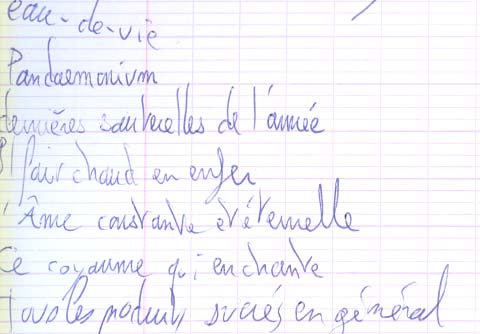 eau-de-vie
Pandaemonium
dernières sauterelles de l'année
Il fait chaud en enfer
l'Âme constante et éternelle
Ce royaume qui enchante
tous les produits sucrés en général